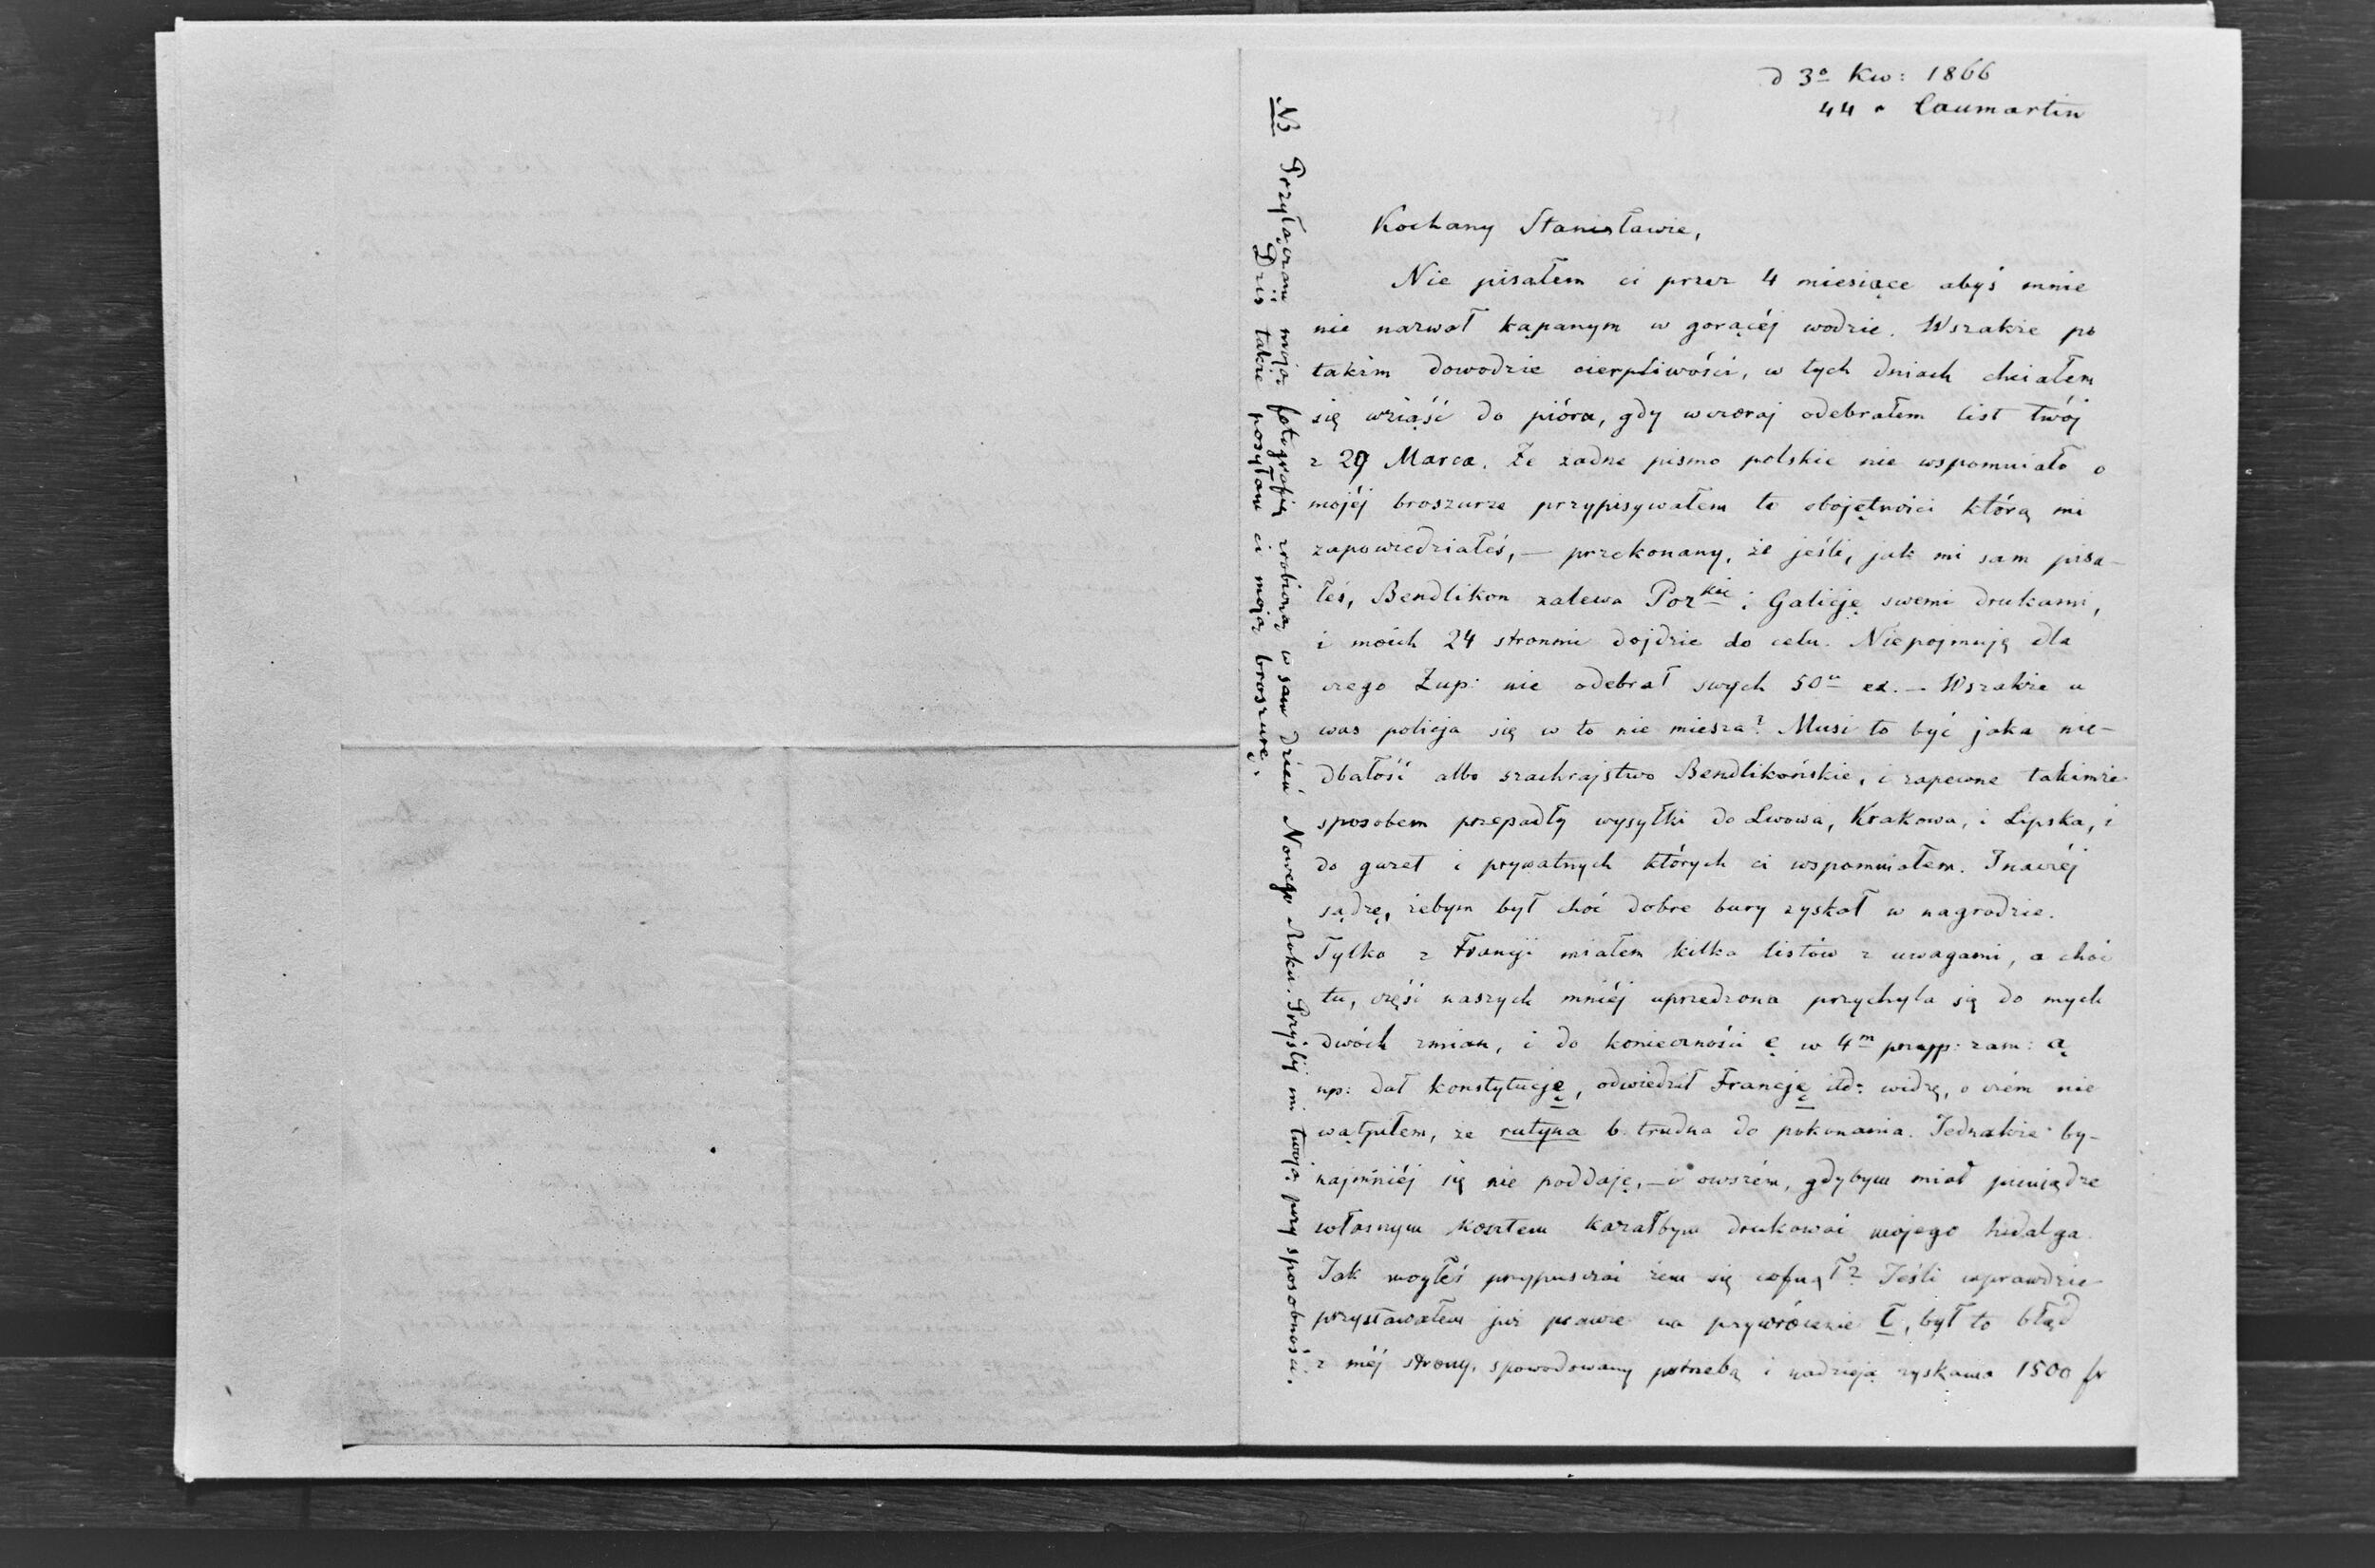 d 3º Kw: 1866
44 r Caumartin
Kochany Stanisławie,
Nie pisałem ci przez 4 miesiące abyś mnie
nie nazwał kąpanym w gorącéj wodzie. Wszakże po
takim dowodzie cierpliwości, w tych dniach chciałem
się wziąść do pióra, gdy wczoraj odebrałem list twój
z 29 Marca. Że żadne pismo polskie nie wspomniało o
mojéj broszurze przypisywałem to obojętności którą mi
zapowiedziałeś, — przekonany, że jeśli, jak mi sam pisa-
łeś, Bendlikon zalewa Pozkie i Galicję swemi drukami,
i moich 24 stronnic dojdzie do celu. Niepojmuję dla
czego Żup: nie odebrał swych 50u ex. — Wszakże u
was policja się w to nie miesza? Musi to być jaka nie-
dbałość albo szachrajstwo Bendlikońskie, i zapewne takimże
sposobem przepadły wysyłki do Lwowa, Krakowa, i Lipska, i
do gazet i prywatnych których ci wspomniałem. Inaczéj
sądzę, żebym był choć dobre bury zyskał w nagrodzie.
Tylko z Francji miałem kilka listów z uwagami, a choć
tu, część naszych mniéj uprzedzona przychyla się do mych
dwóch zmian, i do konieczności ę w 4m przypp: zam: ą
np: dał konstytucję, odwiedził Francję itd: widzę, o czém nie
wątpiłem, że rutyna b. trudna do pokonania. Jednakże by-
najmniéj się nie poddaję, — i owszém, gdybym miał pieniądze
własnym kosztem kazałbym drukować mojego hidalga.
Jak mogłeś przypuszczać żem się cofnął? Jeśli wprawdzie
przystawałem już prawie na przywrócenie ł, był to błąd
z méj strony, spowodowany potrzebą i nadzieją zyskania 1500 fr
NB Przyłączam moją fotografię zrobioną w sam dzień Nowego Roku. Przyślij mi twoją przy sposobności.
Dziś także posyłam ci moją broszurę.